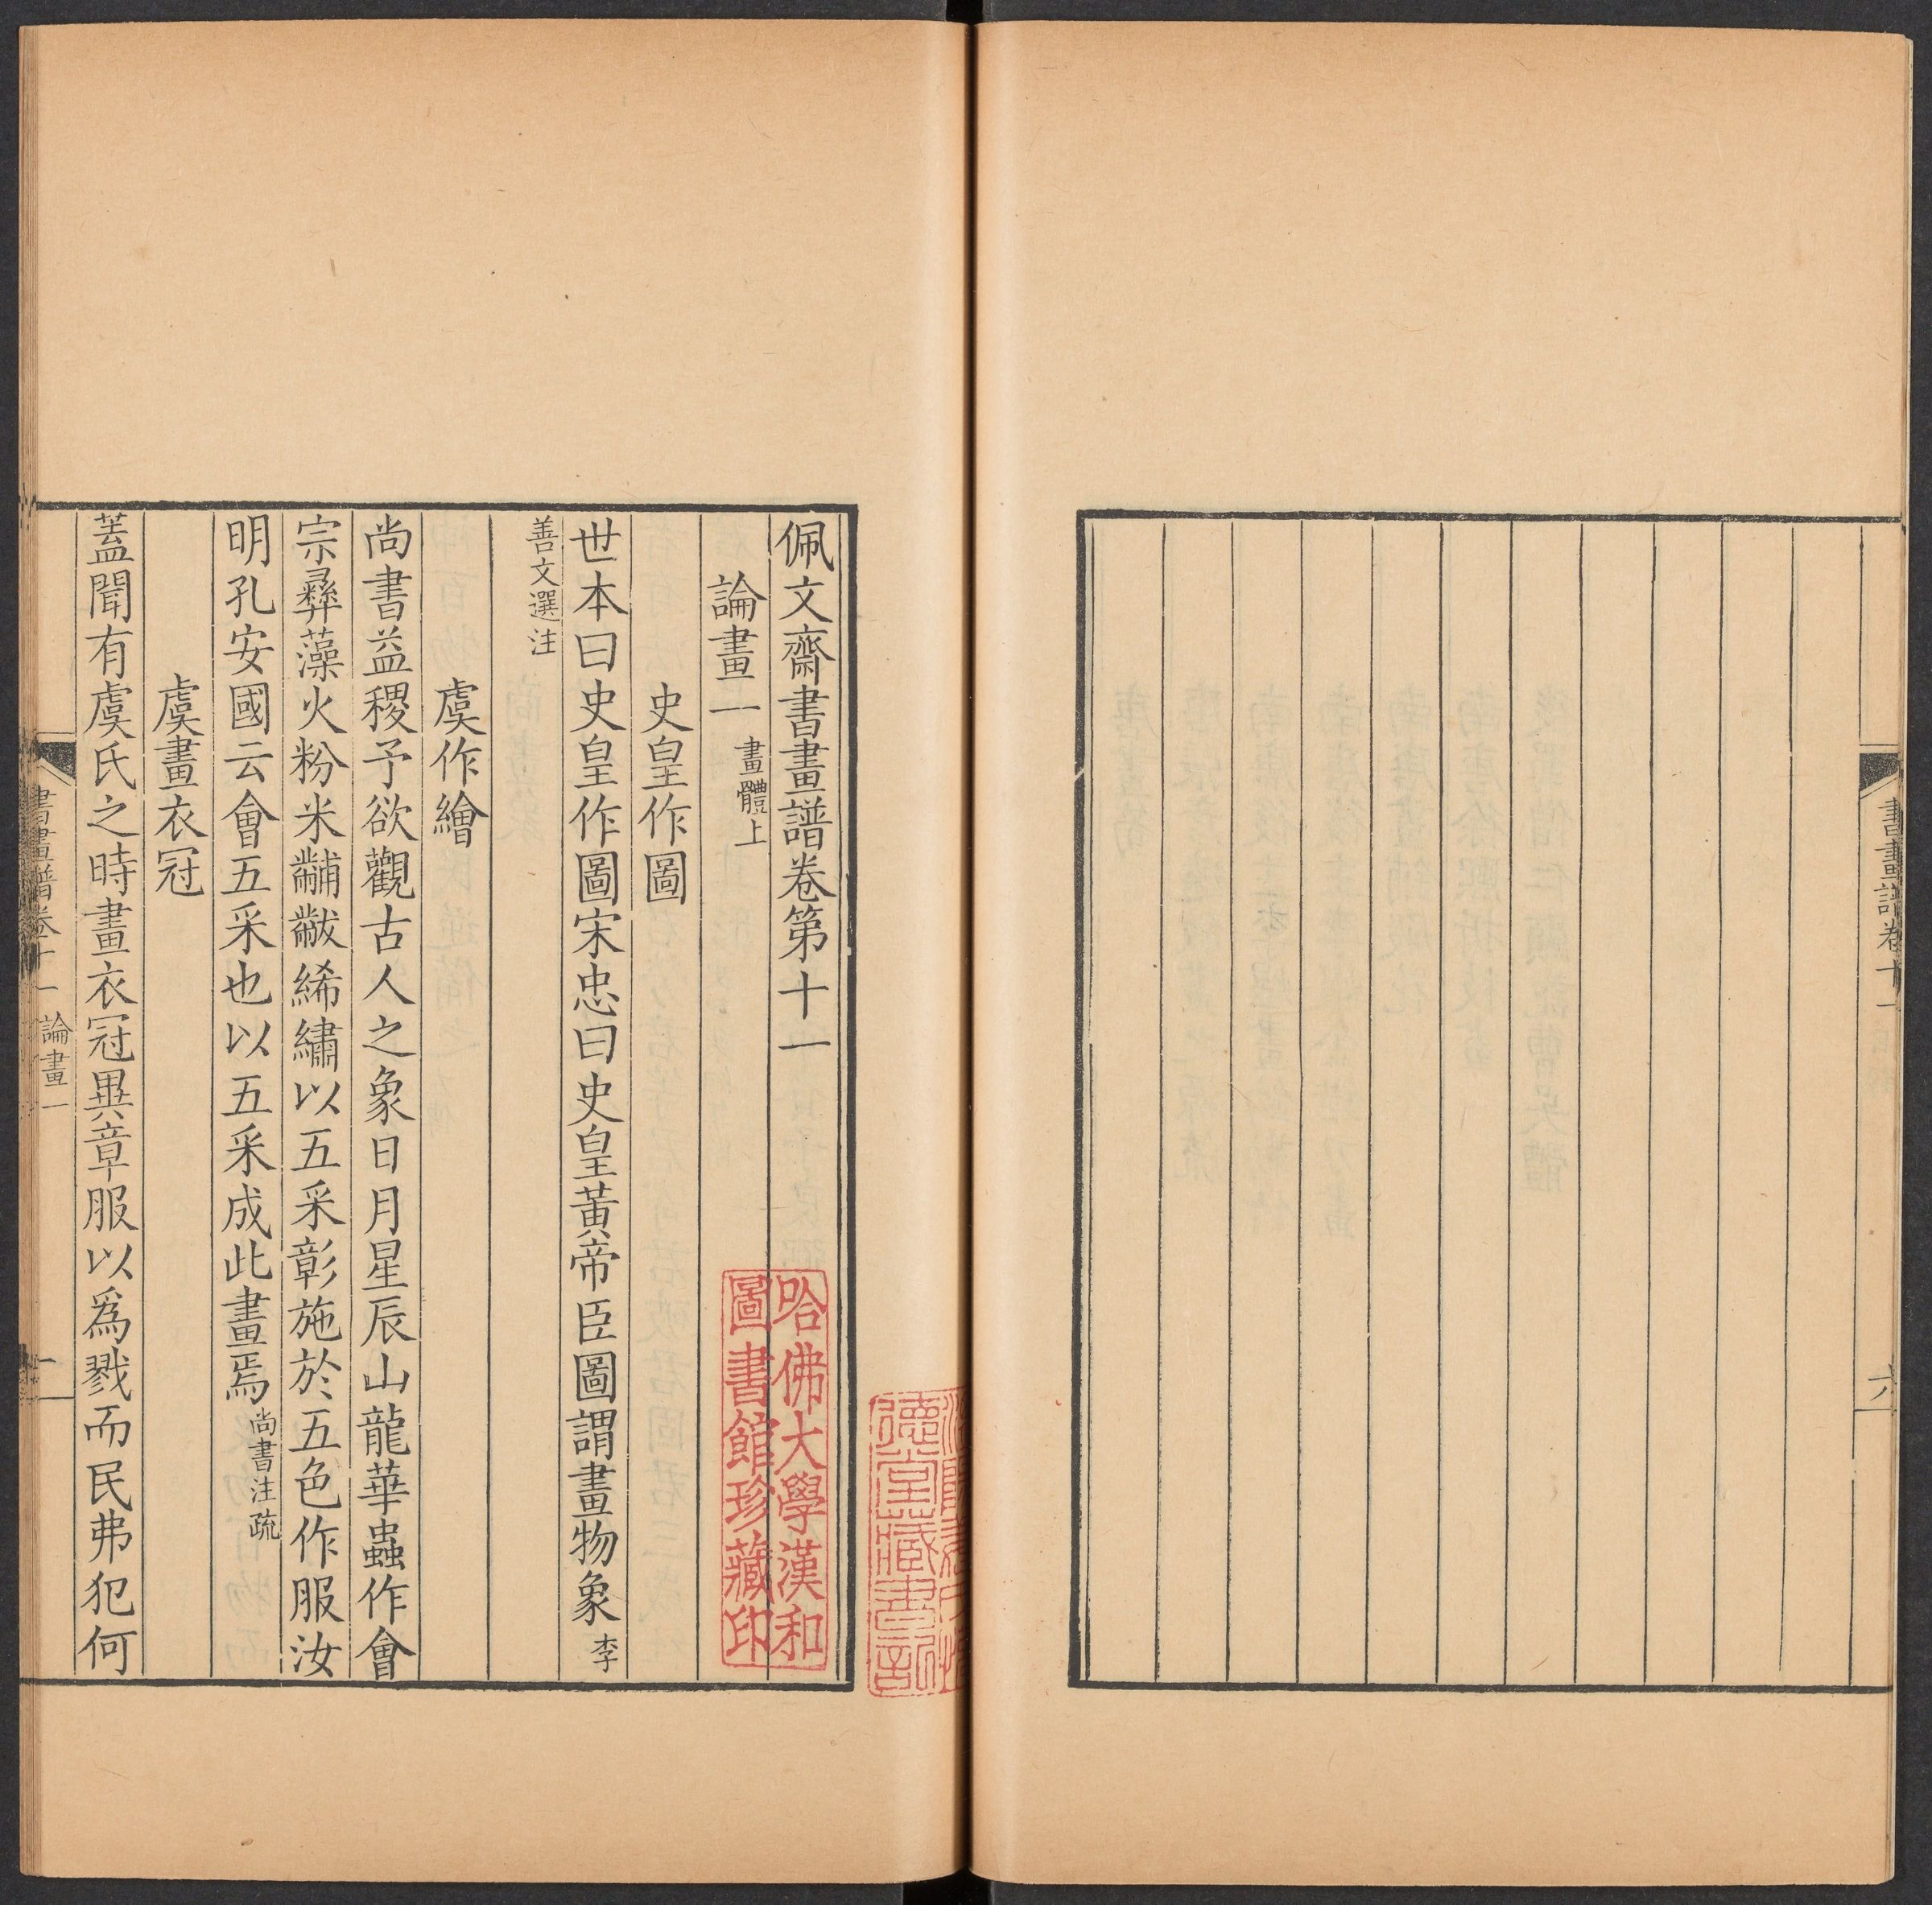 書畫譜卷十一
六
佩文齋書畫譜卷第十一
論畫一 畫體上
史皇作圖
世本曰史皇作圖宋忠曰史皇黃帝臣圖謂畫物象 李
善文選注
虞作繪
尚書益稷予欲觀古人之象日月星辰山龍華蟲作會
宗彝藻火粉米黼黻絺繡以五采彰施於五色作服汝
明孔安國云會五采也以五采成此畫焉 尚書注疏
虞畫衣冠
蓋聞有虞氏之時畫衣冠異章服以爲戮而民弗犯何
書畫譜卷十一 論畫一
一
哈佛大學漢和
圖書館珍藏印
德堂藏書記